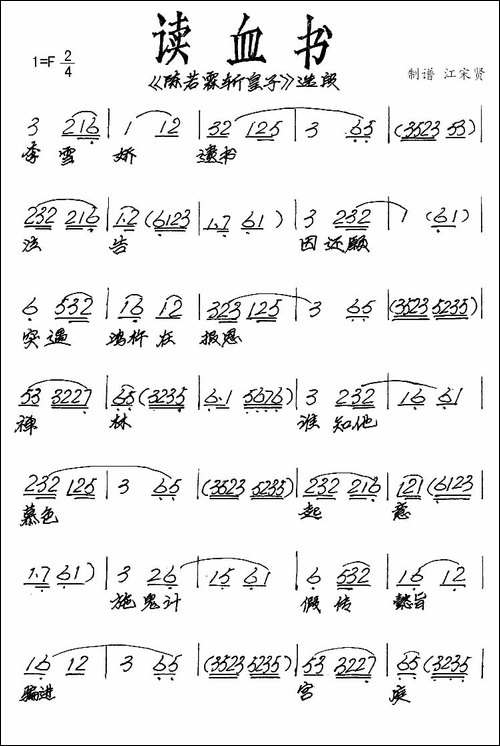 读血书
1=F 2/4
《陈若霖斩皇子》选段
制谱 江宋贤
3 216 | 1 12 | 32 125 | 3 65 | (3523 53) |
李雪 娇 遗书
232 216 | 1·2 (6123 | 1·7 61) | 3 232 | 1 (61) |
泣 告 因还愿
6 532 | 16 12 | 323 125 | 3 65 | (3523 5235) |
突遇 在 报恩
53 3227 | 65 (3235 | 6·1 5676) | 3 232 | 16 61 |
禅 林 谁 知他
232 125 | 3 65 | (3523 5235) | 232 216 | 121 (6123 |
慕色 起 意
1·7 61) | 3 26 | 15 61 | 6 532 | 16 12 |
施鬼计 假传 懿旨
16 12 | 3 65 | (3523 5235) | 53 3227 | 65 (3235 |
骗进 宫 庭